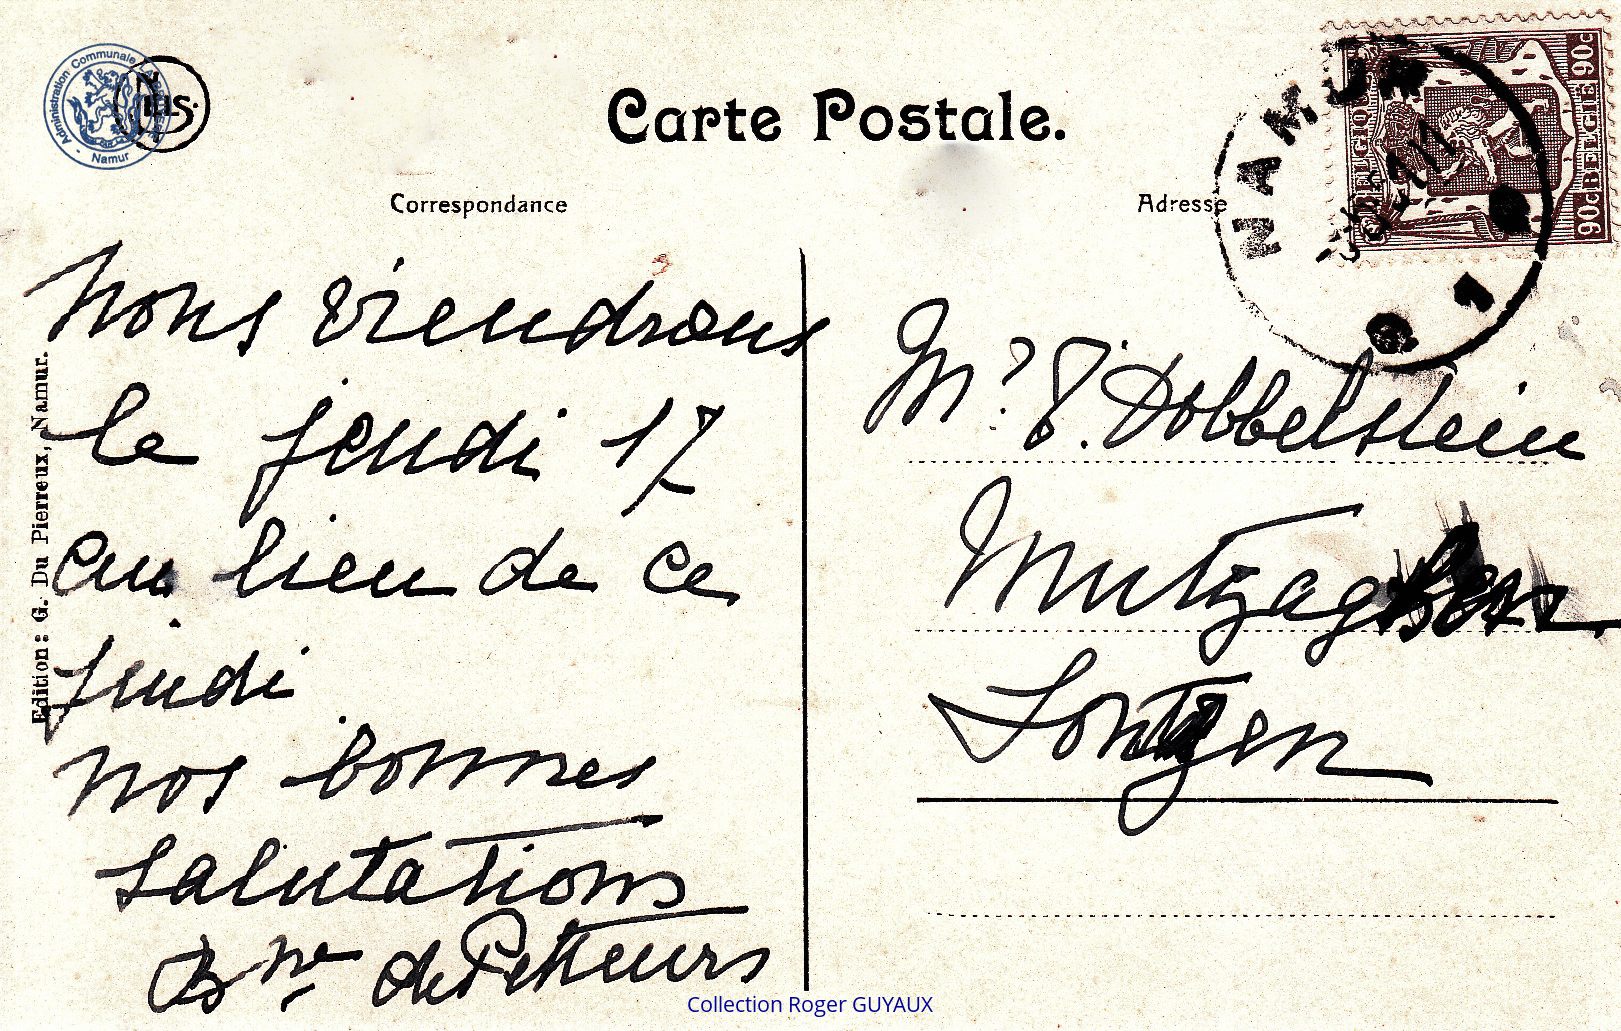 Administration Communale
Namur
Nels.
Carte Postale.
NAMUR
1
BELGIQUE 90c
90c BELGIE
Correspondance
Adresse
Nous viendrons
le jeudi 17
au lieu de ce
jeudi
nos bonnes
salutations
Bne de Pitteurs
Mr P. Dobbelstein
Mutzaghen
Lontzen
Edition : G. Du Pierreux, Namur.
Collection Roger GUYAUX